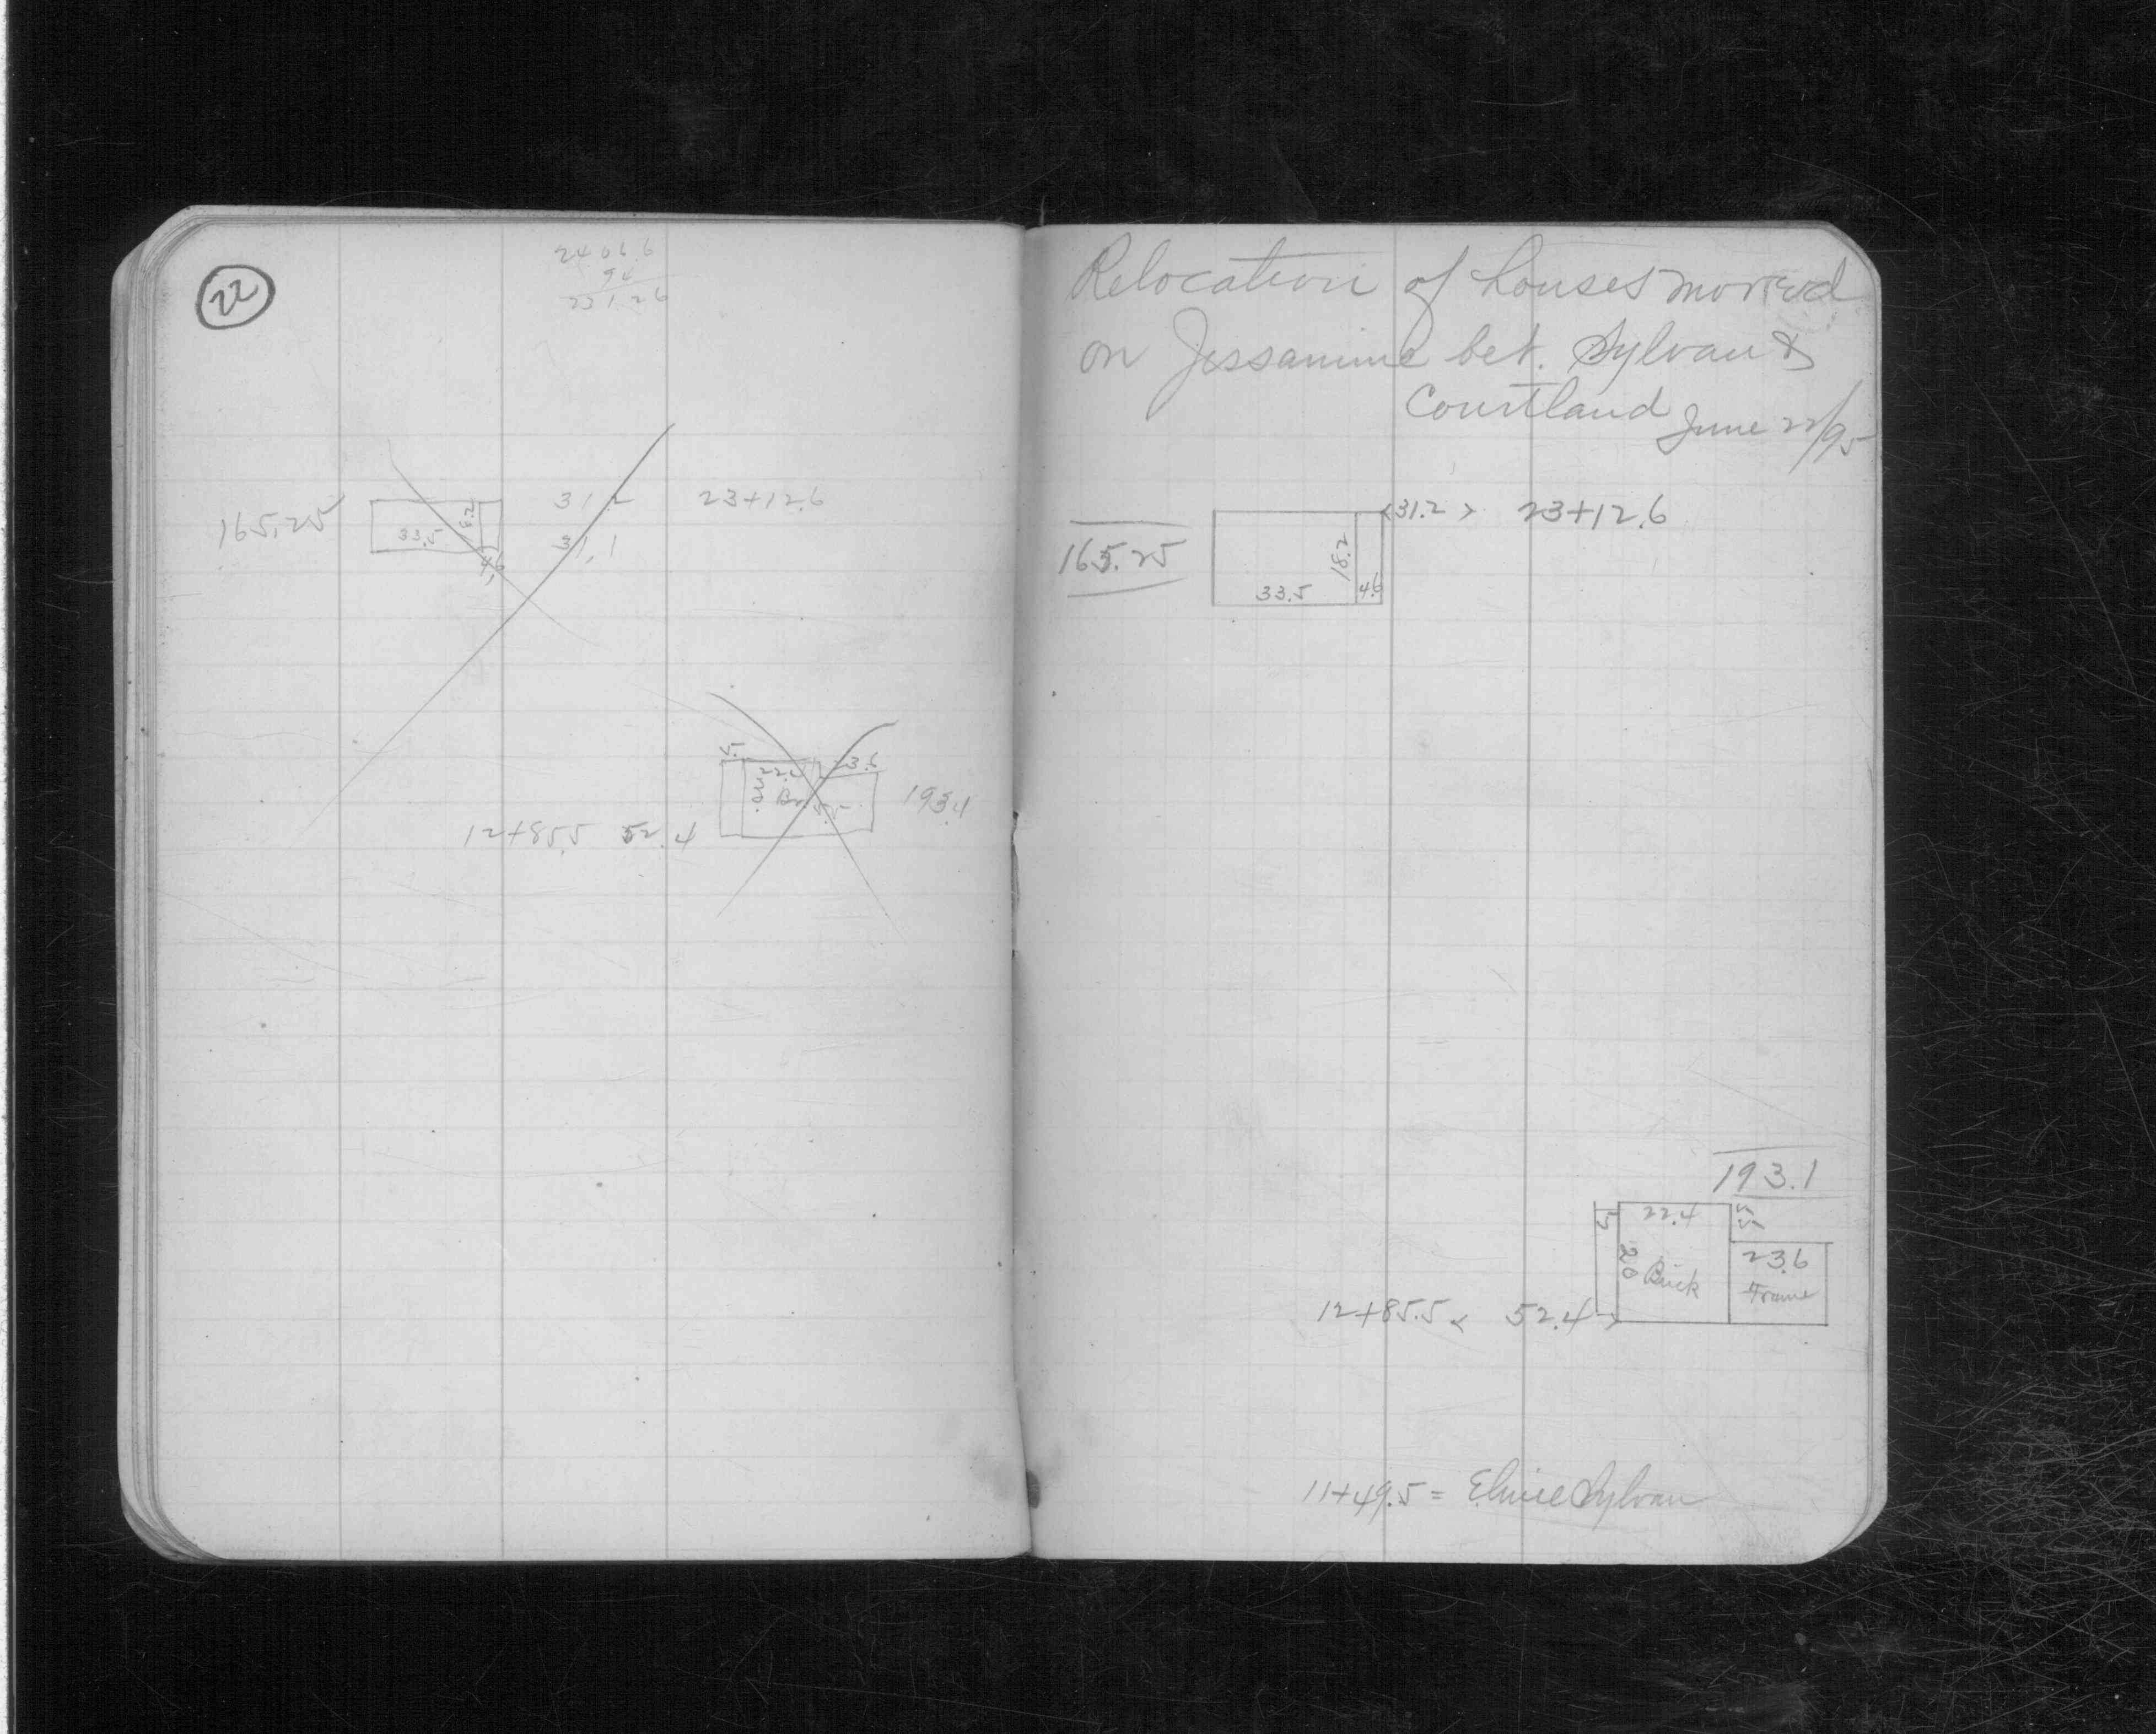 22
2406.6
94
2312.6
165.25
33.5
18.2
4.6
31.2
31.1
23+12.6
5
22.4
23.6
20
Br.
5.5
193.1
12+85.5 52.4
Relocation of houses moved
on Jessamine bet. Sylvan &
Courtland June 22/95
165.25
33.5
18.2
4.6
<31.2> 23+12.6
193.1
5
22.4
5.5
20
Brick
23.6
Frame
12+85.5 < 52.4 >
11+49.5 = Sylvan